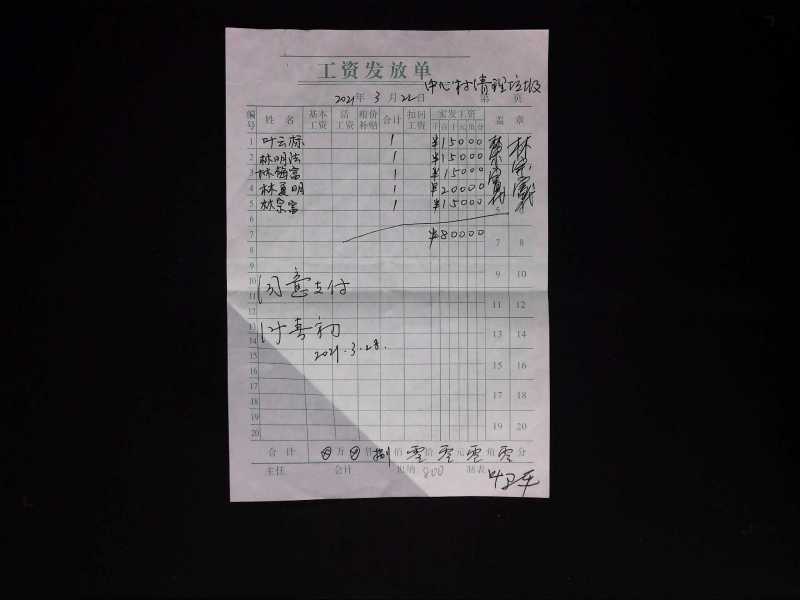 工资发放单
中心村清理垃圾
2021年 3月 22日 第 页
编号 姓名 基本工资 活工资 粮价补贴 合计 扣回工资 实发工资 盖章
千 百 十 元 角 分
1 叶云标 1 ¥15000
2 林明法 1 ¥15000
3 林德富 1 ¥15000
4 林夏明 1 ¥20000
5 林宗富 1 ¥15000 5
6
7 ¥80000 7 8
8
9 9 10
10
同意支付
11 11 12
12
13 13 14
叶春初
14
2021.3.28.
15 15 16
16
17 17 18
18
19 19 20
20
合计 万 仟 捌 佰 零 拾 零 元 零 角 零 分
主任 会计 出纳 800 制表 叶卫平